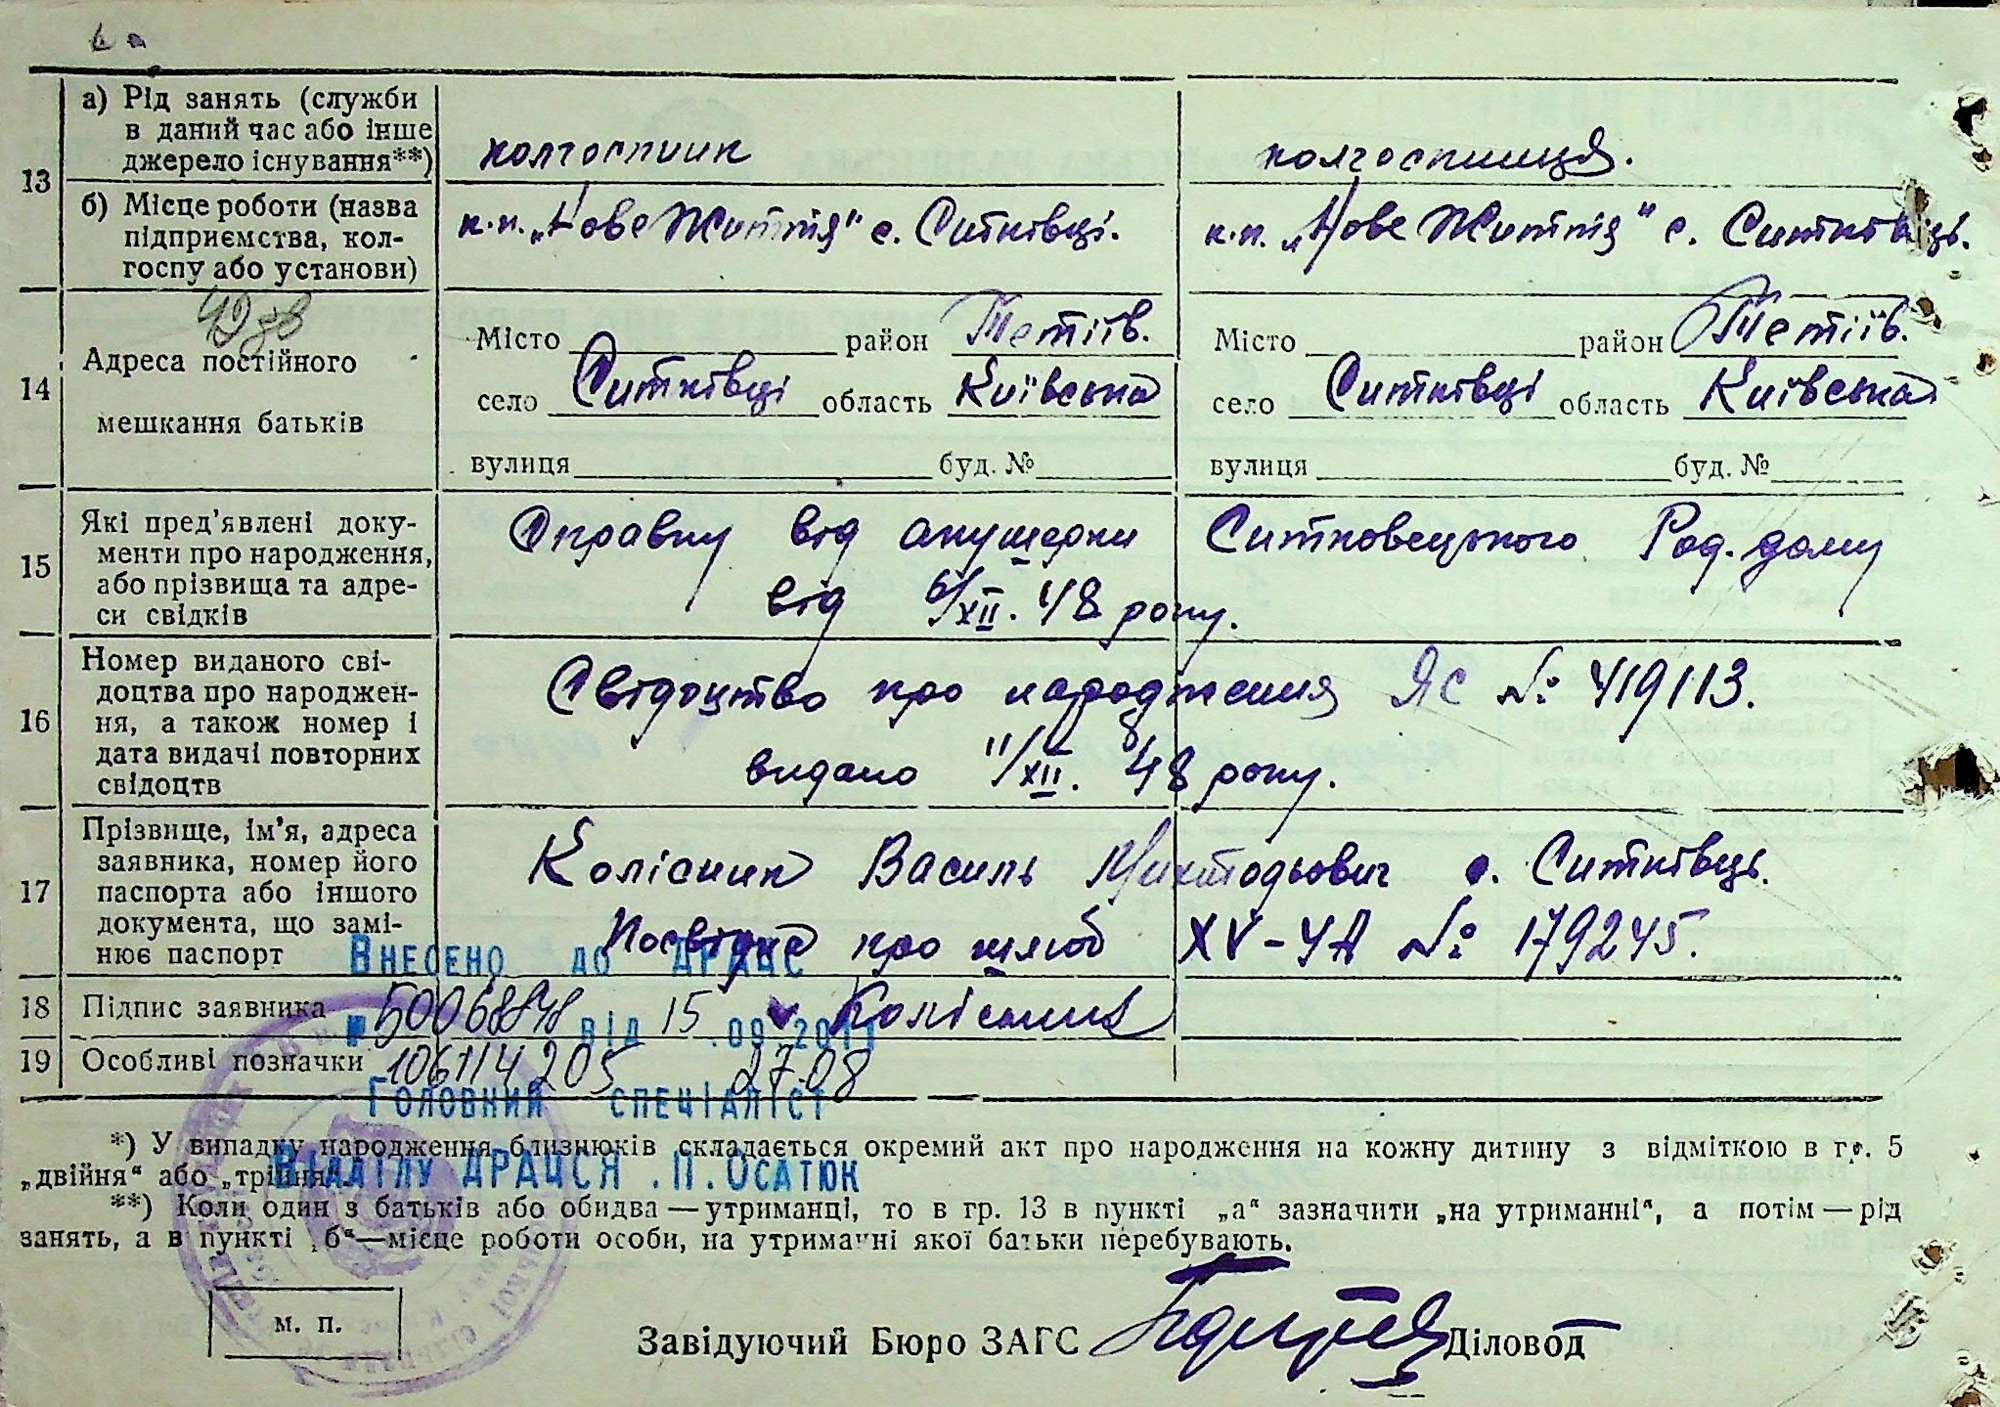 13 а) Рід занять (служби
в даний час або інше
джерело існування**)
колгоспник колгоспниця.
б) Місце роботи (назва
підприємства, кол-
госпу або установи)
к.п. „Нове Життя" с. Ситківці. к.п. „Нове Життя" с. Ситківць.
14 Адреса постійного
мешкання батьків
Місто район Тетіїв. Місто район Тетіїв.
село Ситківці область Київська село Ситківці область Київська
вулиця буд. № вулиця буд. №
15 Які пред'явлені доку-
менти про народження,
або прізвища та адре-
си свідків
Справку від акушерки Ситковецького Род. дому
від 6/XII. 48 року.
16 Номер виданого сві-
доцтва про народжен-
ня, а також номер і
дата видачі повторних
свідоцтв
Свідоцтво про народження ЯС № 419113.
видано 11/XII. 48 року.
17 Прізвище, ім'я, адреса
заявника, номер його
паспорта або іншого
документа, що замі-
нює паспорт
Колісник Василь с. Ситківць.
Посвідка про шлюб XV-УА № 179245.
Внесено до ДРАЦС
18 Підпис заявника Колісник
№ 50068848 від 15 .09.2011
19 Особливі позначки 106114205 27.08
Головний спеціаліст
*) У випадку народження близнюків складається окремий акт про народження на кожну дитину з відміткою в гр. 5
„двійня" або „трійня".
Відділу ДРАЦСЯ .П.Осатюк
**) Коли один з батьків або обидва — утриманці, то в гр. 13 в пункті „а" зазначити „на утриманні", а потім — рід
занять, а в пункті „б"—місце роботи особи, на утриманні якої батьки перебувають.
м. п.
Завідуючий Бюро ЗАГС Діловод